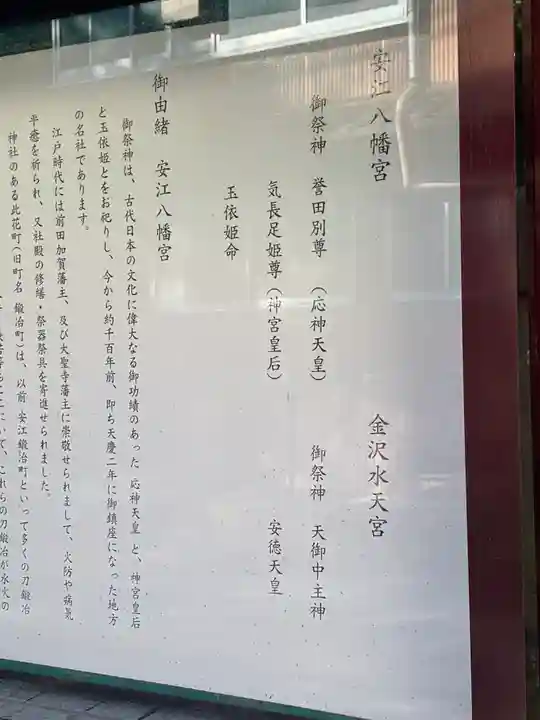 安江八幡宮　金沢水天宮
御祭神　誉田別尊（応神天皇）　御祭神　天御中主神
気長足姫尊（神宮皇后）　安徳天皇
玉依姫命
御由緒　安江八幡宮
御祭神は、古代日本の文化に偉大なる御功績のあった 応神天皇 と、神宮皇后
と玉依姫とをお祀りし、今から約千百年前、即ち天慶二年に御鎮座になった地方
の名社であります。
江戸時代には前田加賀藩主、及び大聖寺藩主に崇敬せられまして、火防や病気
平癒を祈られ、又社殿の修繕・祭器祭具を寄進せられました。
神社のある此花町（旧町名 鍛冶町）は、以前 安江鍛冶町といって多くの刀鍛冶
これらの刀鍛冶が永火の